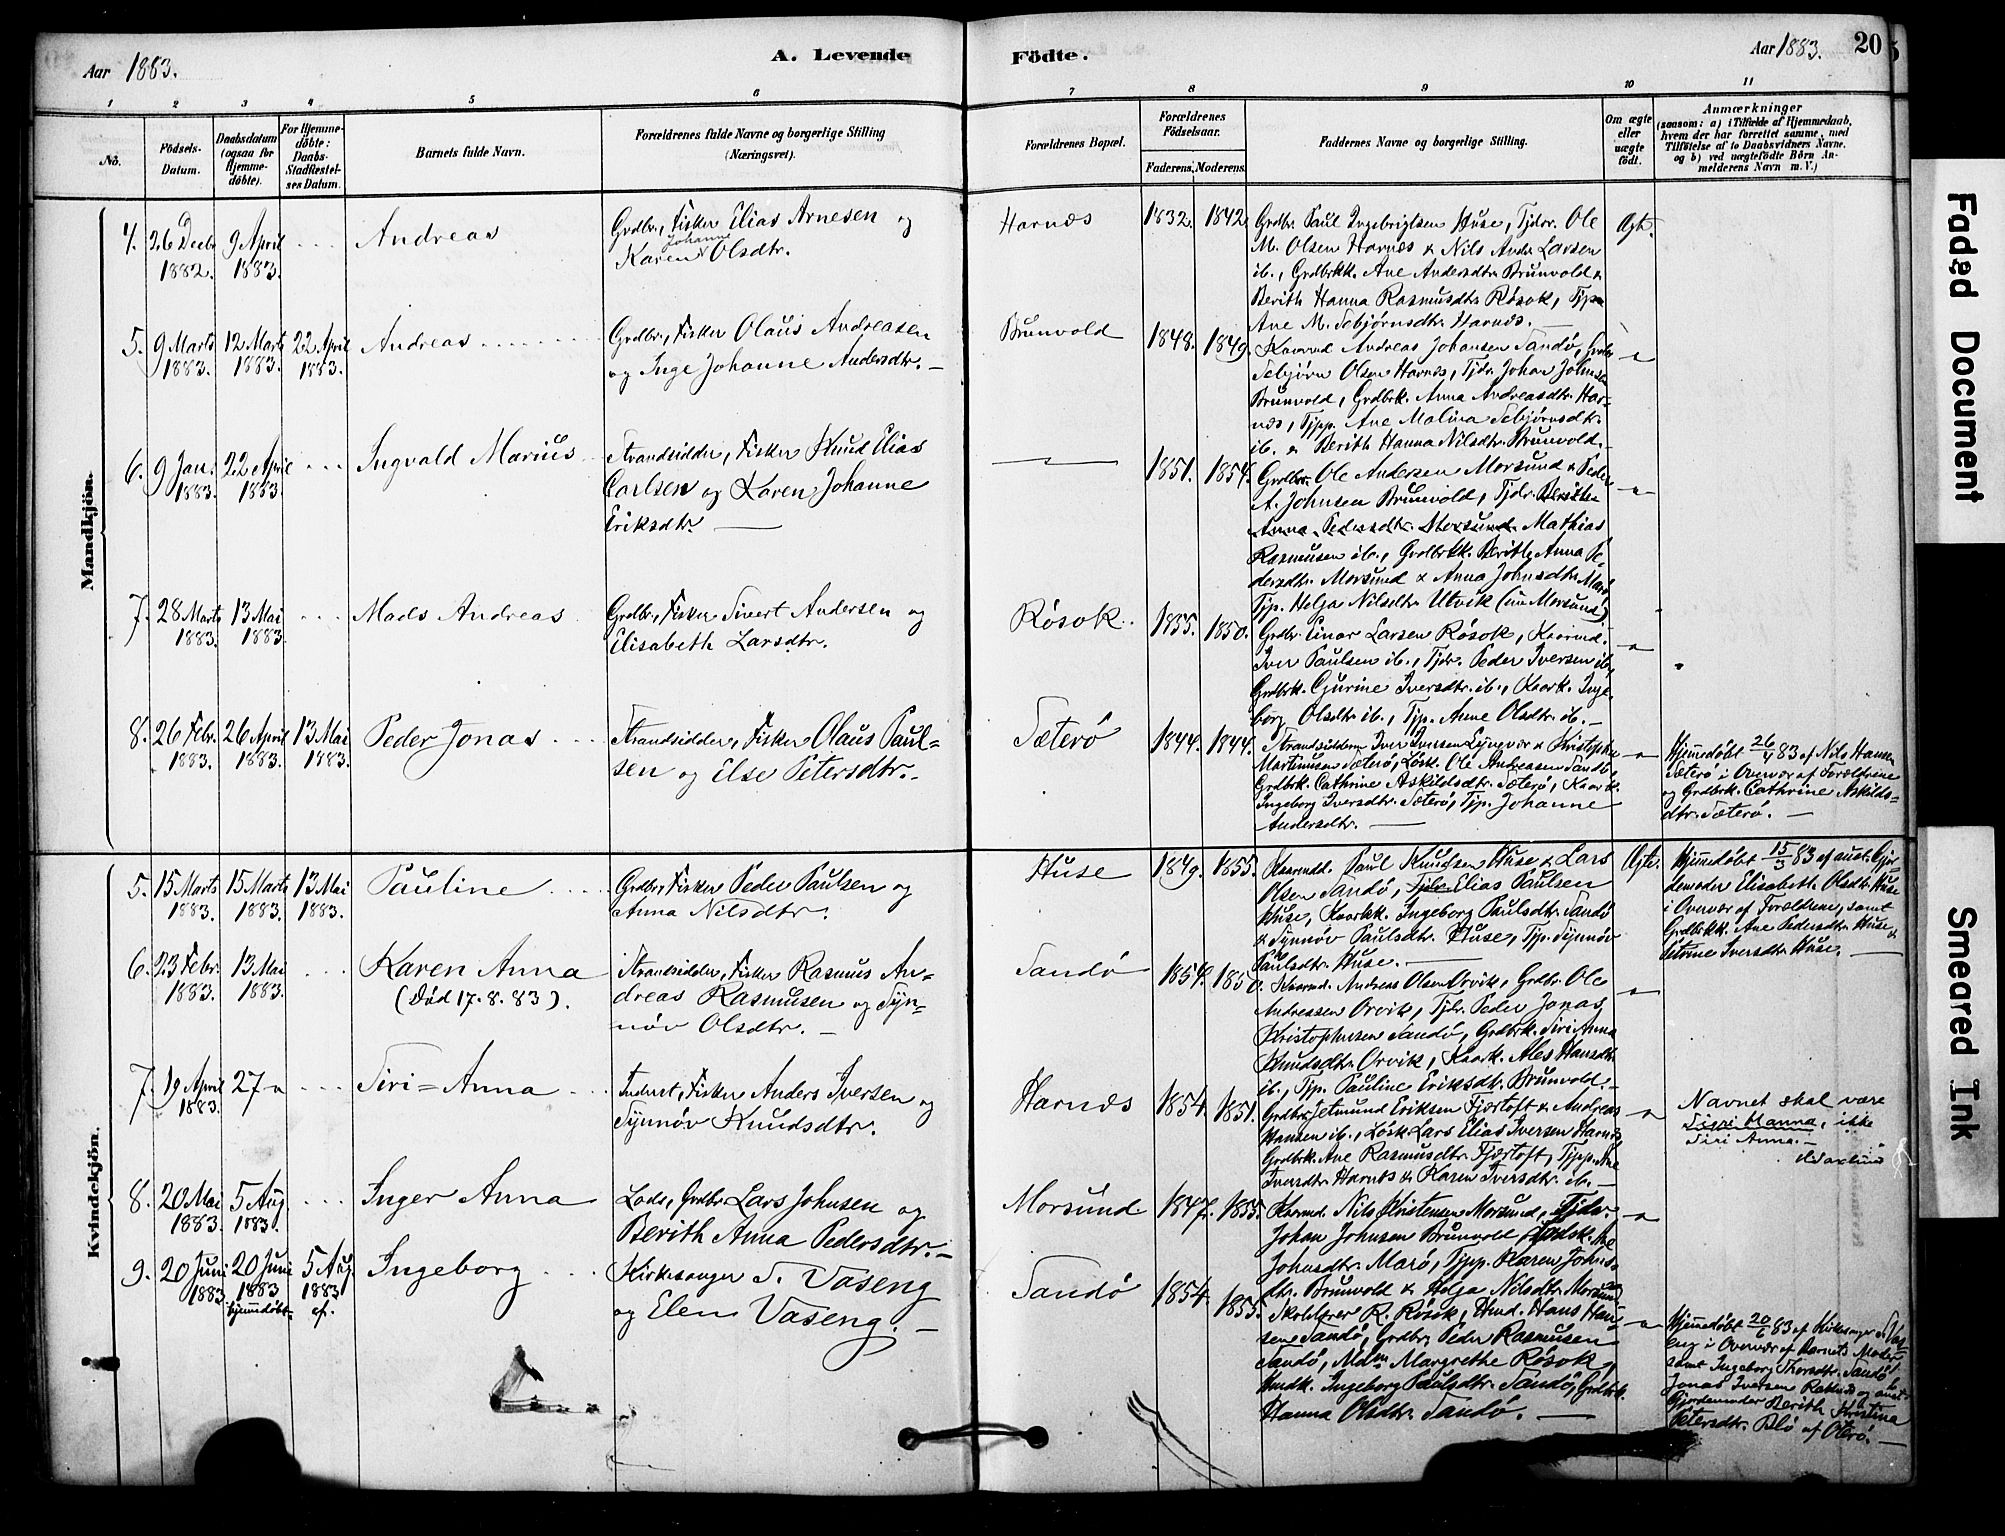 Aar 1883.
A. Levende
Födte.
Aar 1883.
20
1 2 3 4 5 6 7 8 9 10 11
No.
Födsels-
Datum.
Daabsdatum
(ogsaa for
Hjemme-
döbte).
For Hjemme-
döbte:
Daabs-
Stadfæstel-
ses Datum.
Barnets fulde Navn.
Forældrenes fulde Navne og borgerlige Stilling
(Næringsvei).
Forældrenes Bopæl.
Forældrenes
Födselsaar.
Faderens. Moderens.
Faddernes Navne og borgerlige Stilling.
Om ægte
eller
uægte
födt.
Anmærkninger
(saasom: a) i Tilfælde af Hjemmedaab,
hvem der har forrettet samme, med
Tilföielse af to Daabsvidners Navne,
og b) ved uægtefödte Börn An-
melderens Navn m. V.)
Mandkjön.
4. 26 Decbr 1882. 9 April 1883. Andreas
Grdbr., Fisker Elias Arnesen og
Karen Johanne Olsdtr.
Harnæs 1832. 1842.
Grdbr. Paul Ingebrigtsen Huse, Tjdr. Ole
M. Olsen Harnæs & Nils Andr. Larsen
ib., Grdbrkk. Ane Andersdtr. Brunvold &
Berith Hanna Rasmusdtr. Røsok, Tjp.
Ane M. Sebjørnsdtr. Harnæs.
Ægte.
5. 9 Marts 1883. 12 Marts 1883. 22 April 1883. Andreas
Grdbr., Fisker Olaus Andreasen
og Inge Johanne Andersdtr.
Brunvold 1848. 1849.
Andreas Johansen Sandø, Grdbr.
Sebjørn Olsen Harnæs, Tjdr. Johan Johnsen
Brunvold, Grdbrk. Anna Andreasdtr. Har-
næs, Tjpp. Ane Malina Sebjørnsdtr.
ib. & Berith Hanna Nilsdtr. Brunvold.
6. 9 Jan. 1883. 22 April 1883. Ingvald Marius
Strandsidder, Fisker Knud Elias
Carlsen og Karen Johanne
Eriksdtr.
1851. 1854.
Grdbr. Ole Andersen Morsund & Peder
A. Johnsen Brunvold, Tjdr.
Anna Pedersdtr. Morsund Mathias
Rasmusen ib., Grdbrkk. Berith Anna Pe-
dersdtr. Morsund & Anna Johnsdtr. Marø,
Tjp. Helga Nilsdtr. Utvik (nu Morsund)
7. 28 Marts 1883. 13 Mai 1883. Mads Andreas
Grdbr., Fisker Sivert Andersen og
Elisabeth Larsdtr.
Røsok. 1855. 1850.
Grdbr. Einar Larsen Røsok, Kaarmd.
Iver Paulsen ib., Tjdr. Peder Iversen ib.,
Grdbrk. Gjurine Iversdtr. ib., Kaark. Inge-
borg Olsdtr. ib., Tjp. Anne Olsdtr. ib.
8. 26 Febr. 1883. 26 April 1883. 13 Mai 1883. Peder Jonas
Strandsidder, Fisker Olaus Paul-
sen og Else Petersdtr.
Sæterø 1844. 1844.
Strandsiddern Iver Iversen Lyngvær & Kristopher
Martinusen Sæterø, Løsk. Ole Andreasen Sandø,
Grdbrk. Cathrine Askildsdtr. Sæterø, Kaark.
Ingeborg Iversdtr. Sæterø, Tjp. Johanne
Andersdtr.
Hjemmedøbt 26/4 83 af Nils Hansen
Sæterø i Overvær af Forældrene
og Grdbrk. Cathrine Askilds-
dtr. Sæterø.
Kvindekjön.
5. 15 Marts 1883. 15 Marts 1883. 13 Mai 1883. Pauline
Grdbr., Fisker Peder Paulsen og
Anna Nilsdtr.
Huse 1849. 1855.
Kaarmd. Paul Knudsen Huse & Lars
Olsen Sandø, Tjdr. Elias Paulsen
Huse, Kaarkk. Ingeborg Paulsdtr. Sandø
& Synnøv Paulsdtr. Huse, Tjp. Synnøv
Paulsdtr. Huse.
Ægte.
Hjemmedøbt 15/3 83 af aust. Gjor-
demoder Elisabeth Olsdtr. Huse
i Overvær af Forældrene, samt
Grdbrkk. Ane Pedersdtr. Huse &
Petrine Iversdtr. Huse.
6. 23 Febr. 1883. 13 Mai 1883. Karen Anna
(Død 17.8.83).
Strandsidder, Fisker Rasmus An-
dreas Rasmusen og Syn-
nøv Olsdtr.
Sandø 1854. 1850.
Kaarmd. Andreas Olsen Orvik, Grdbr. Ole
Andreassen Orvik, Tjdr. Peder Jonas
Kristophersen Sandø, Grdbrk. Siri Anna
Knudsdtr. Orvik, Kaark. Ales Hansdtr.
ib., Tjp. Pauline Eriksdtr. Brunvold.
7. 19 April 1883. 27 Siri-Anna
Inderst, Fisker Anders Iversen og
Synnøv Knudsdtr.
Harnæs 1854. 1851.
Grdbr. Jetmund Eriksen Fjørtoft & Andreas
Hansen ib., Løsk. Lars Elias Iversen Harnæs,
Grdbrk. Ane Rasmusdtr. Fjørtoft, Tjpp. Ane
Iversdtr. Harnæs & Karen Iversdtr. ib.
Navnet skal være
Siri Hanna, ikke
Siri Anna.
8. 20 Mai 1883. 5 Aug. 1883. Inger Anna
Lods, Grdbr. Lars Johnsen og
Berith Anna Pedersdtr.
Morsund 1847. 1855.
Kaarmd. Nils Kristensen Morsund, Tjdr.
Johan Johnsen Brunvold, Ane
Johnsdtr. Marø, Tjpp. Karen Johns-
dtr. Brunvold & Helga Nilsdtr. Morsund
9. 20 Juni 1883. 20 Juni 1883 hjemmedøbt. 5 Aug. 1883 Ingeborg
Kirkesanger S. Vaseng
og Elen Vaseng.
Sandø 1854. 1855.
Skolelærer R. Røsok, Hmd. Hans Han-
sen Sandø, Grdbr. Peder Rasmusen
Sandø, Mdm Margrethe Røsok,
Hmdk. Ingeborg Paulsdtr. Sandø, Grdbrk.
Hanna Olsdtr. Sandø.
Hjemmedøbt 20/6 83 af Kirkesanger S. Vas-
eng i Overvær af Barnets Moder
samt Ingeborg Thorsdtr. Sandø,
Jonas Iversen og aust.
Gjordemoder Berith Kristina
Petersdtr. af Oterø.
Faded Document
Smeared Ink